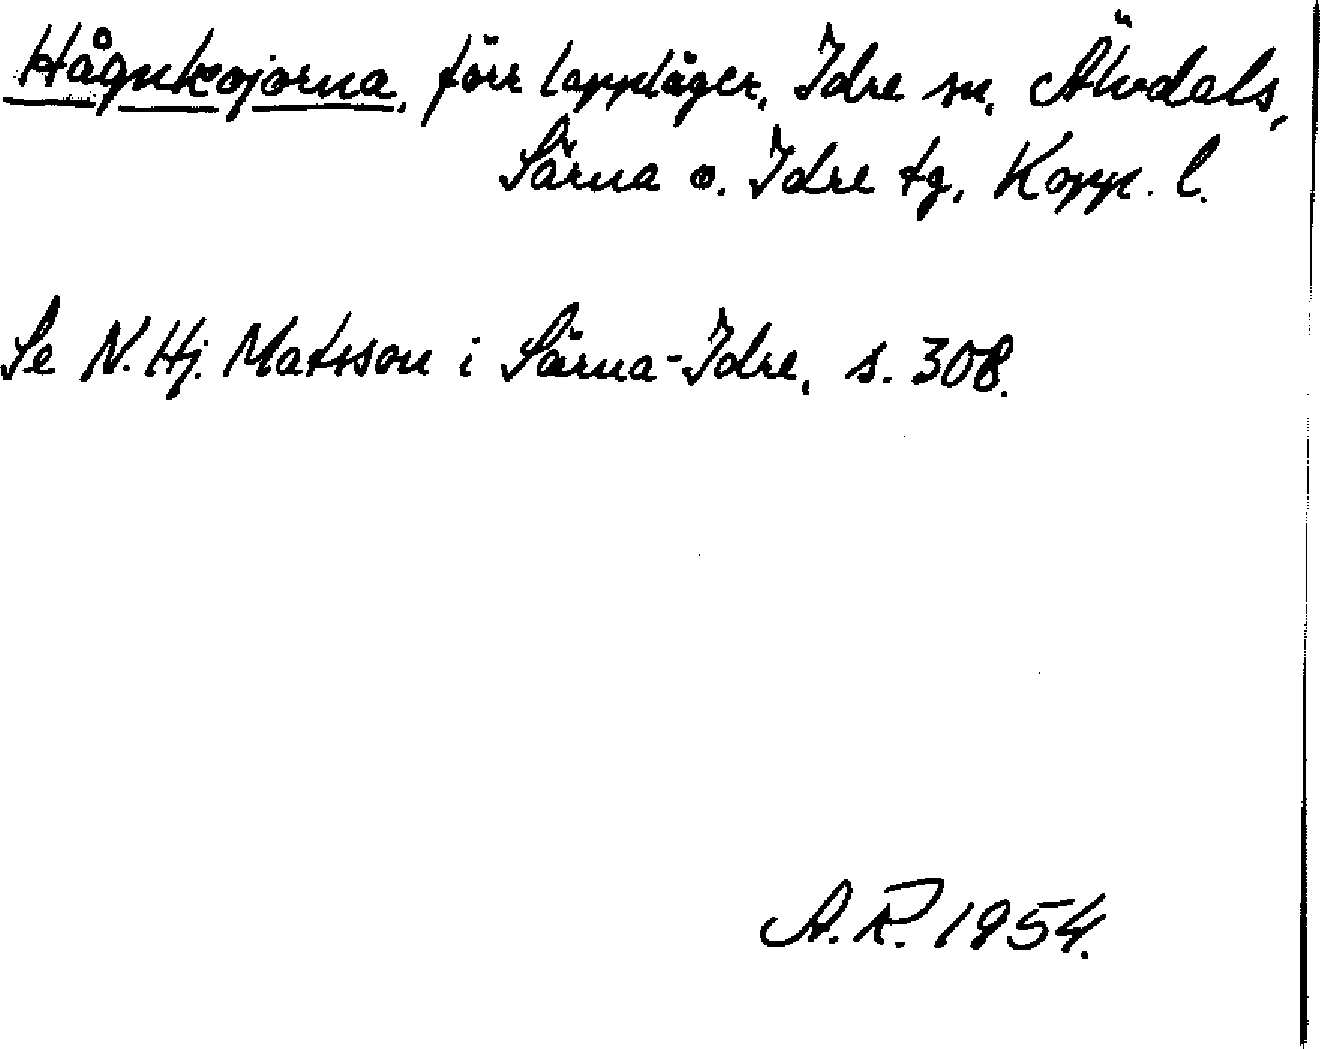 Hågnkojorna, förr lappläger, Idre sn, Älvdals,
Särna o. Idre tg, Kopp. l.
Se N. Hj. Matsson i Särna-Idre, s. 308.
A.R. 1954.